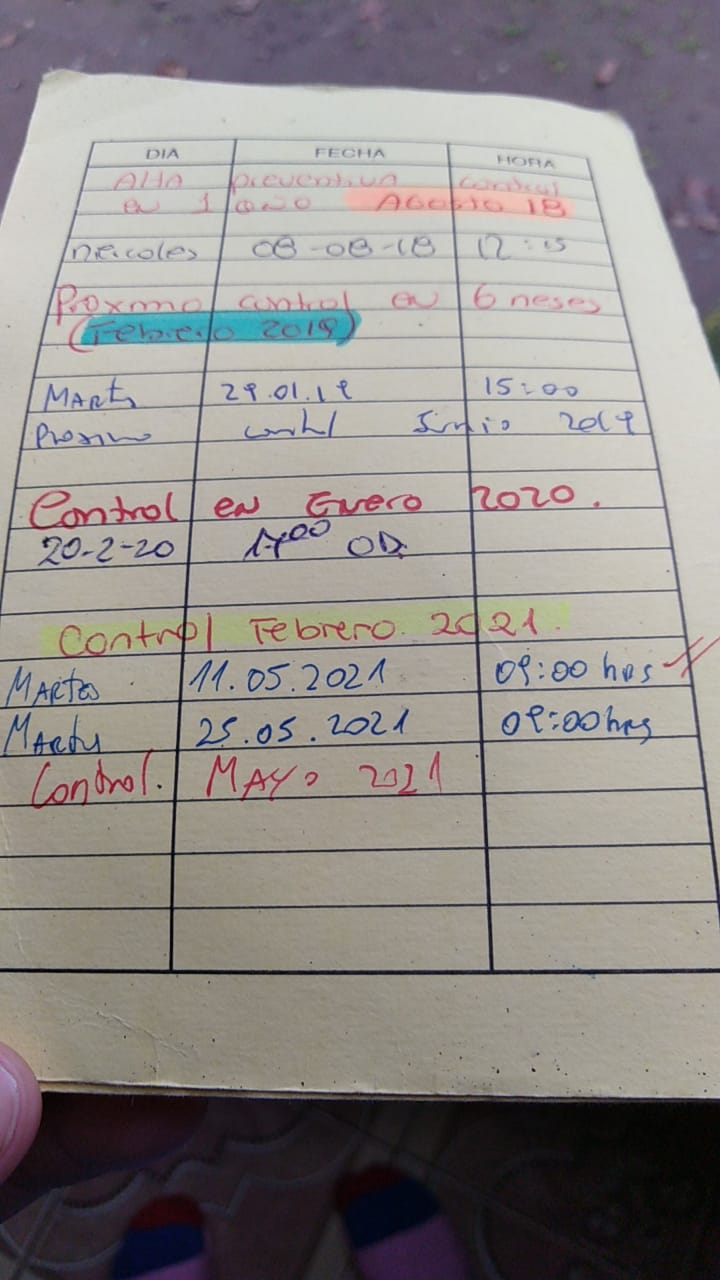 DIA FECHA HORA
Alta preventiva control
en 1 año Agosto 18
Miercoles 08-08-18 12:15
Proximo control en 6 meses
(Febrero 2019)
Martes 29.01.19 15:00
Proximo control Junio 2019
Control en Enero 2020.
20-2-20 1700
Control Febrero. 2021.
Martes. 11.05.2021 09:00 hrs
Martes 25.05.2021 09:00 hrs
Control. MAYO 2021